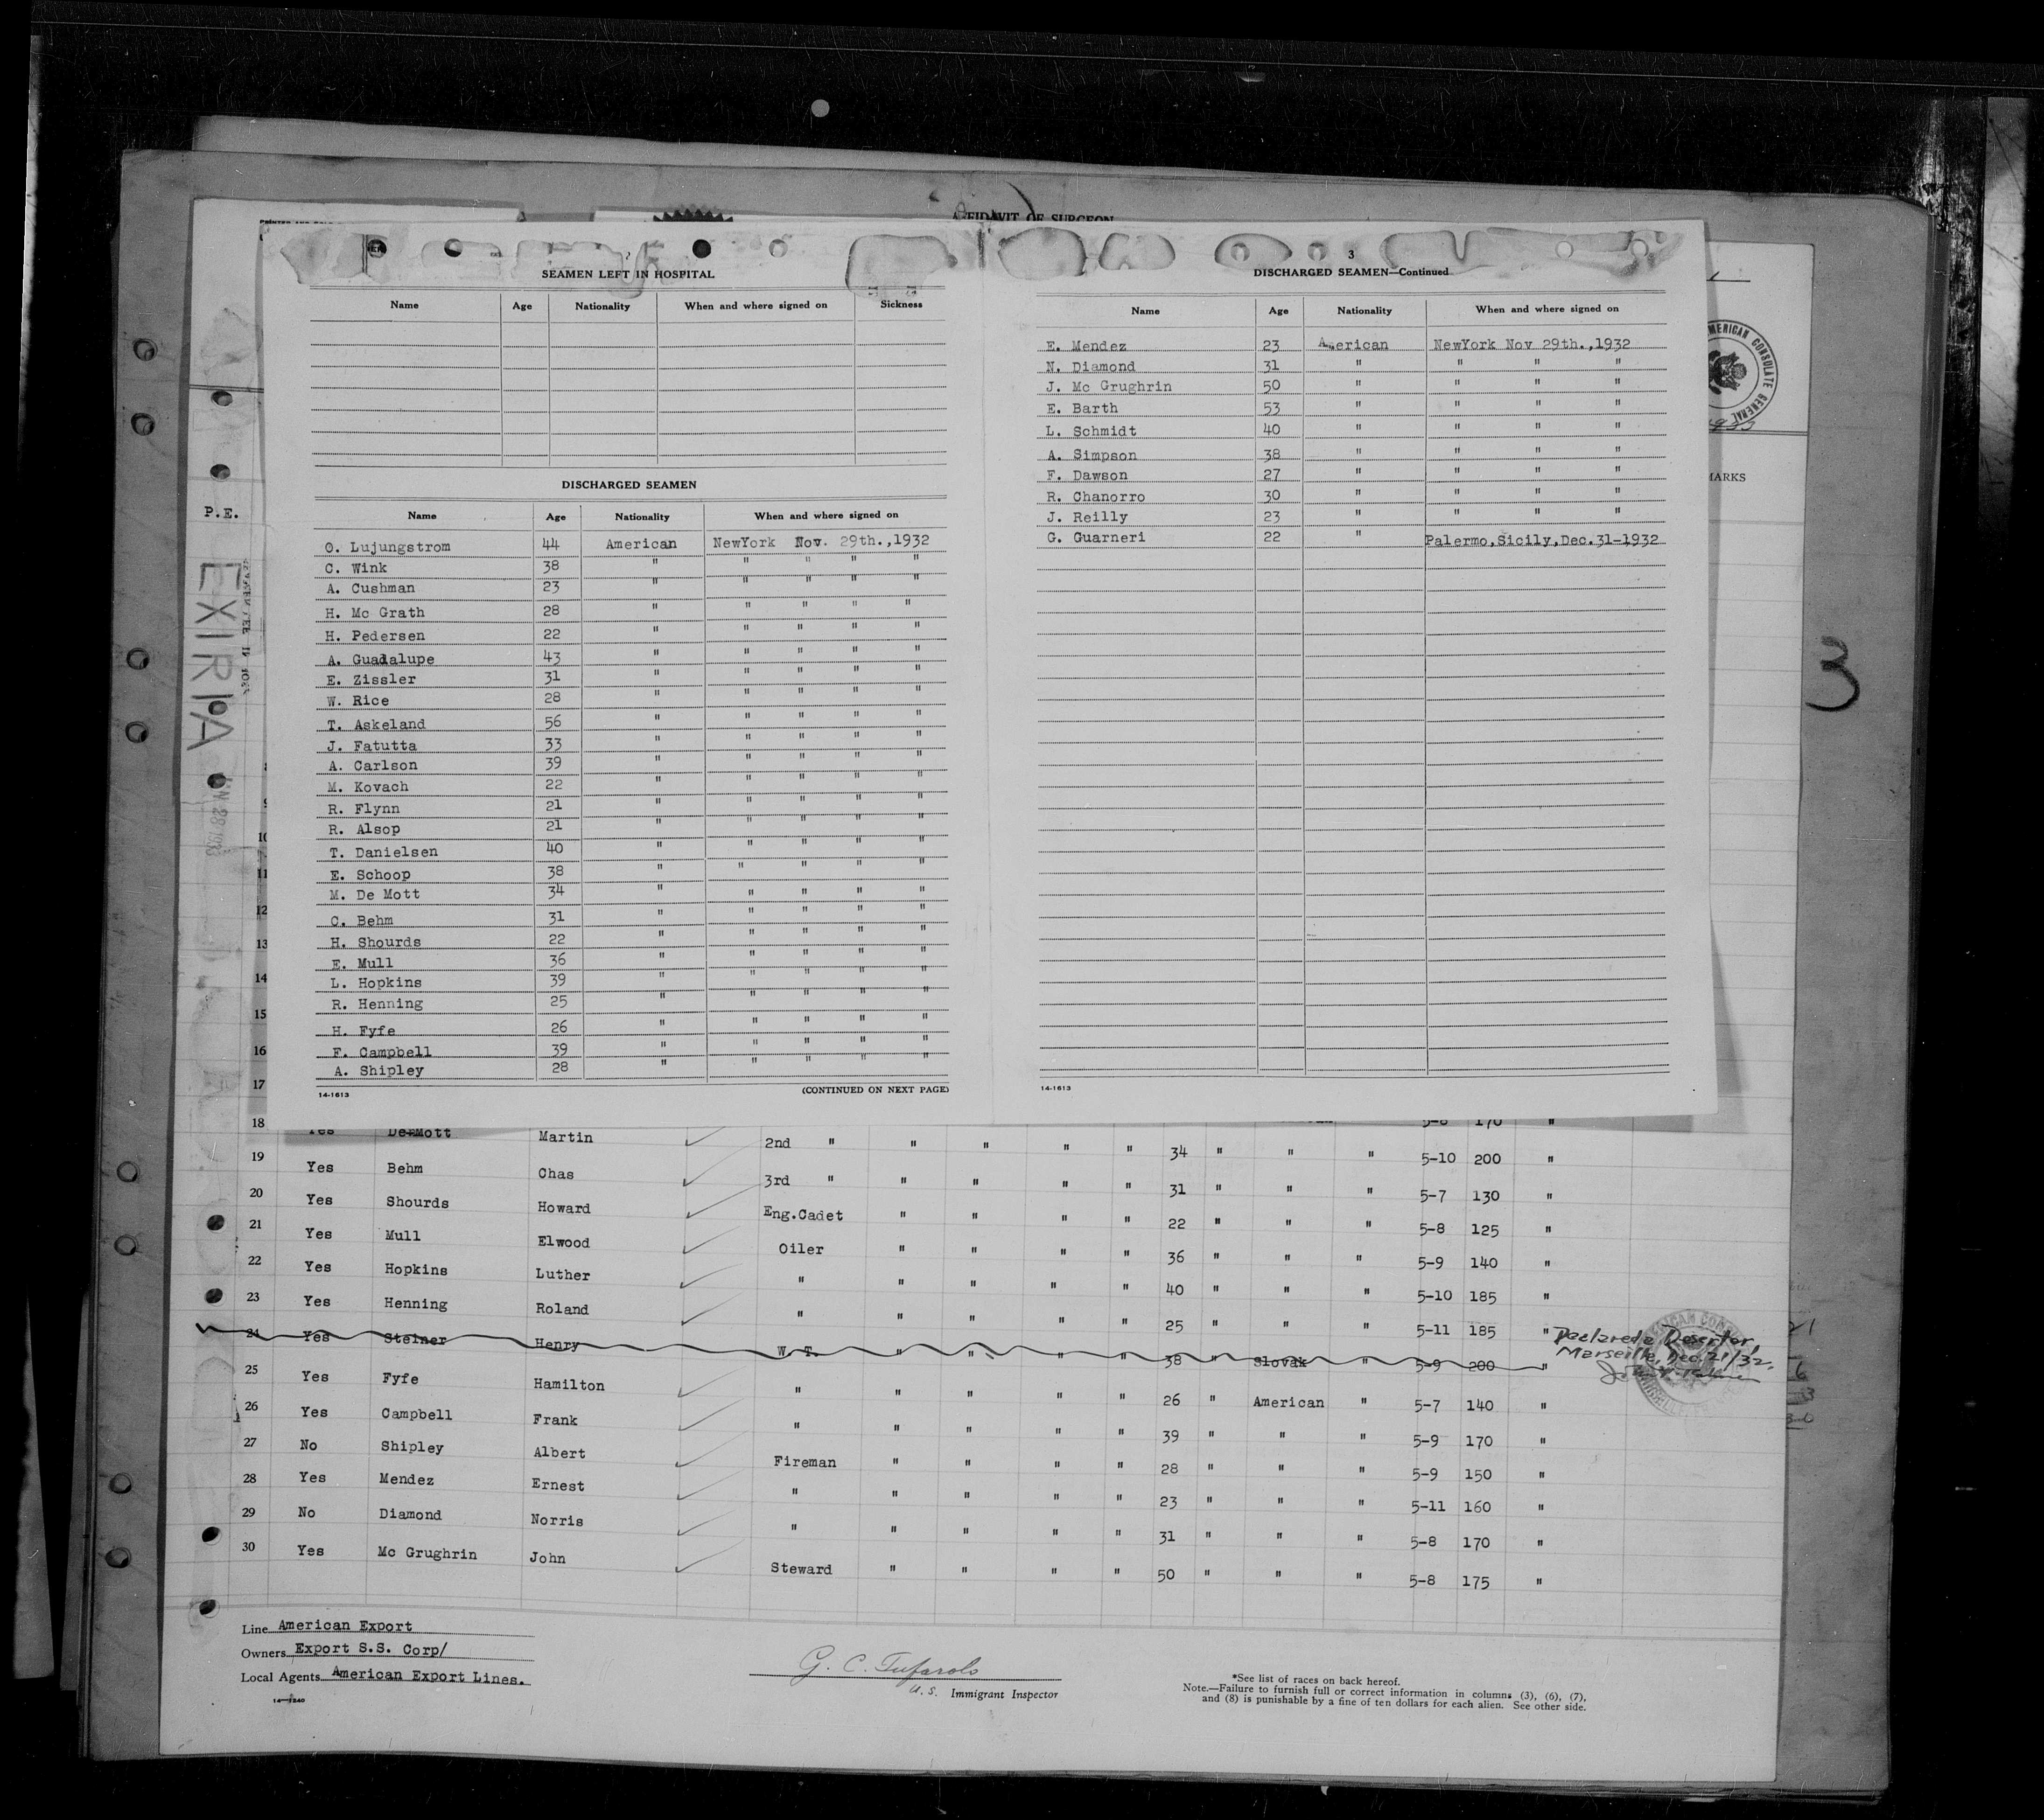 AFFIDAVIT OF SURGEON
SEAMEN LEFT IN HOSPITAL
Name Age Nationality When and where signed on Sickness
DISCHARGED SEAMEN
Name Age Nationality When and where signed on
O. Lujungstrom 44 American NewYork Nov. 29th.,1932
C. Wink 38 " " " " "
A. Cushman 23 " " " " "
H. Mc Grath 28 " " " " "
H. Pedersen 22 " " " " "
A. Guadalupe 43 " " " " "
E. Zissler 31 " " " " "
W. Rice 28 " " " " "
T. Askeland 56 " " " " "
J. Fatutta 33 " " " " "
A. Carlson 39 " " " " "
M. Kovach 22 " " " " "
R. Flynn 21 " " " " "
R. Alsop 21 " " " " "
T. Danielsen 40 " " " " "
E. Schoop 38 " " " " "
M. De Mott 34 " " " " "
C. Behm 31 " " " " "
H. Shourds 22 " " " " "
E. Mull 36 " " " " "
L. Hopkins 39 " " " " "
R. Henning 25 " " " " "
H. Fyfe 26 " " " " "
F. Campbell 39 " " " " "
A. Shipley 28 " " " " "
14-1613 (CONTINUED ON NEXT PAGE)
3
DISCHARGED SEAMEN—Continued
Name Age Nationality When and where signed on
E. Mendez 23 American NewYork Nov 29th.,1932
N. Diamond 31 " " " "
J. Mc Grughrin 50 " " " "
E. Barth 53 " " " "
L. Schmidt 40 " " " "
A. Simpson 38 " " " "
F. Dawson 27 " " " "
R. Chanorro 30 " " " "
J. Reilly 23 " " " "
G. Guarneri 22 " Palermo,Sicily,Dec.31-1932
14-1613
AMERICAN CONSULATE GENERAL
MARKS
3
P.E.
EXIRIA
28 1933
9
10
11
12
13
14
15
16
17
18 Yes DeMott Martin 2nd " " " " " 34 " " " 5-10 200 "
19 Yes Behm Chas 3rd " " " " " 31 " " " 5-7 130 "
20 Yes Shourds Howard Eng.Cadet " " " " 22 " " " 5-8 125 "
21 Yes Mull Elwood Oiler " " " " 36 " " " 5-9 140 "
22 Yes Hopkins Luther " " " " " 40 " " " 5-10 185 "
23 Yes Henning Roland " " " " " 25 " " " 5-11 185 "
24 Yes Steiner Henry W. T. " " " " 38 " Slovak " 5-9 200 "
Declared a Deserter,
Marseille, Dec. 21/32.
25 Yes Fyfe Hamilton " " " " " 26 " American " 5-7 140 "
26 Yes Campbell Frank " " " " " 39 " " " 5-9 170 "
27 No Shipley Albert Fireman " " " " 28 " " " 5-9 150 "
28 Yes Mendez Ernest " " " " " 23 " " " 5-11 160 "
29 No Diamond Norris " " " " " 31 " " " 5-8 170 "
30 Yes Mc Grughrin John Steward " " " " 50 " " " 5-8 175 "
Line American Export
Owners Export S.S. Corp/
Local Agents American Export Lines.
14-1240
G. C. Tufarolo
U.S. Immigrant Inspector
*See list of races on back hereof.
Note.—Failure to furnish full or correct information in columns (3), (6), (7),
and (8) is punishable by a fine of ten dollars for each alien. See other side.